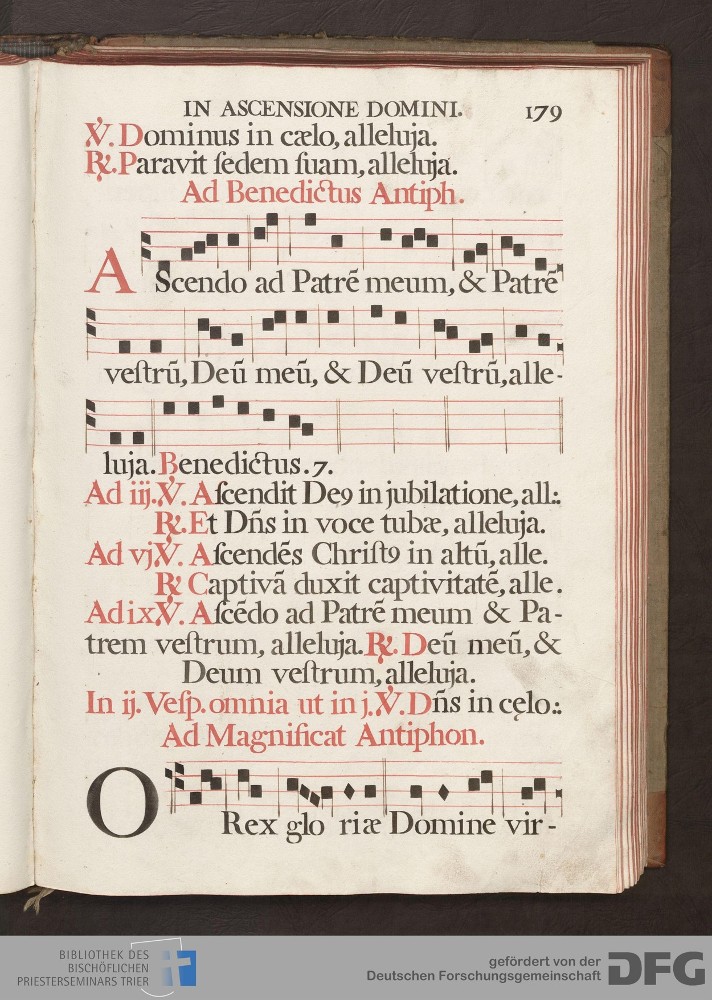 IN ASCENSIONE DOMINI. 179
℣. Dominus in cælo, alleluja.
℟. Paravit ſedem ſuam, alleluja.
Ad Benedictus Antiph.
AScendo ad Patrē meum, & Patrē
veſtrū, Deū meū, & Deū veſtrū, alle-
luja. Benedictus. 7.
Ad iij. ℣. Aſcendit Deꝯ in jubilatione, all:.
℟. Et Dñs in voce tubæ, alleluja.
Ad vj ℣. Aſcendēs Chriſtꝯ in altū, alle.
℟ Captivā duxit captivitatē, alle.
Ad ix. ℣. Aſcēdo ad Patrē meum & Pa-
trem veſtrum, alleluja. ℟. Deū meū, &
Deum veſtrum, alleluja.
In ij. Veſp. omnia ut in j. ℣. Dñs in cęlo:.
Ad Magnificat Antiphon.
O Rex glo riæ Domine vir-
BIBLIOTHEK DES
BISCHÖFLICHEN
PRIESTERSEMINARS TRIER
gefördert von der
Deutschen Forschungsgemeinschaft DFG